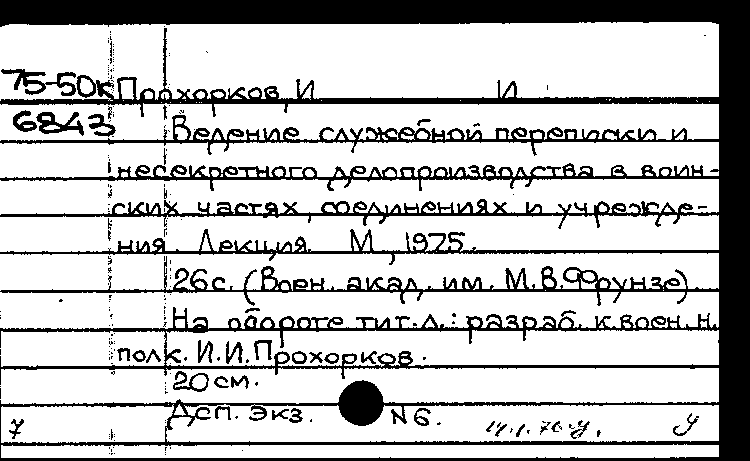 75-50к Прохорков, И И
6843 Ведение служебной переписки и
несекретного делопроизводства в воин-
ских частях, соединениях и учрежде-
ния. Лекция. М., 1975.
26 с. (Воен. акад. им. М.В.Фрунзе)
На обороте тит.л.: разраб. к.воен.н.
полк. И.И.Прохорков.
20 см.
Дсп. Экз. N 6.
7